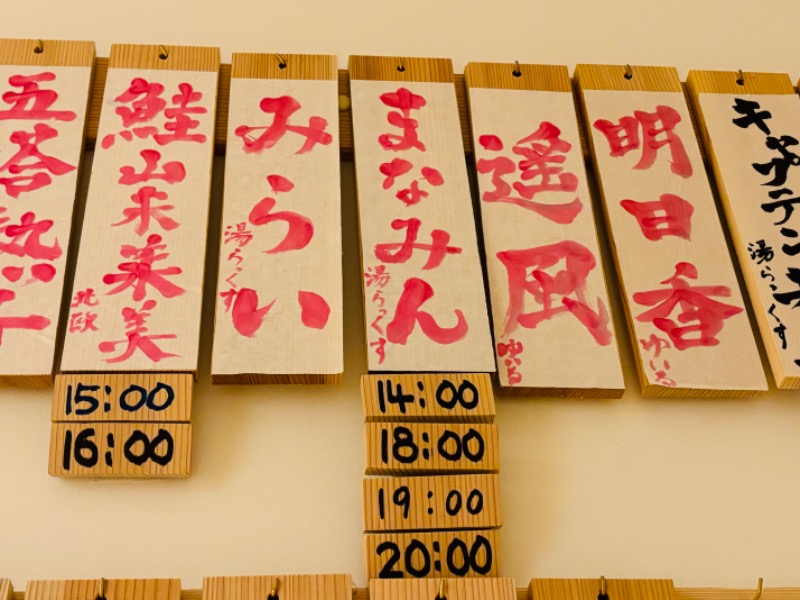 五塔熱子
鮭山未菜美
北欧
みらい
湯らっくす
まなみん
湯らっくす
遥凪
ゆいる
明日香
ゆいる
キャプテン
湯らっくす
15:00
16:00
14:00
18:00
19:00
20:00